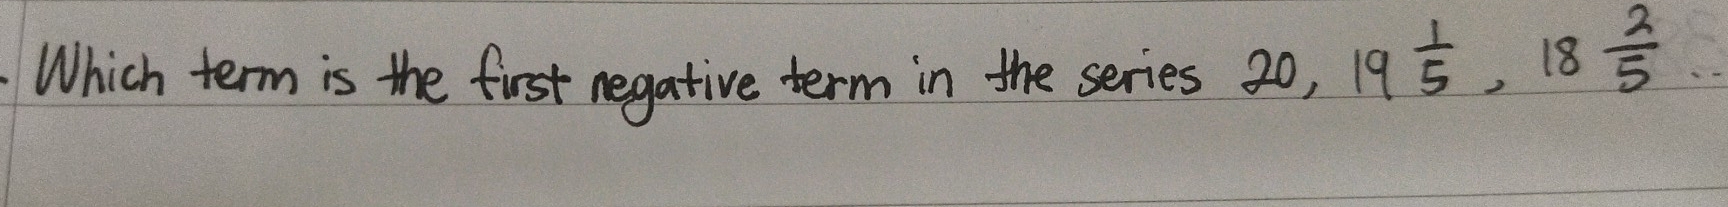 . Which term is the first negative term in the series 20, 19 1/5, 18 2/5 ...